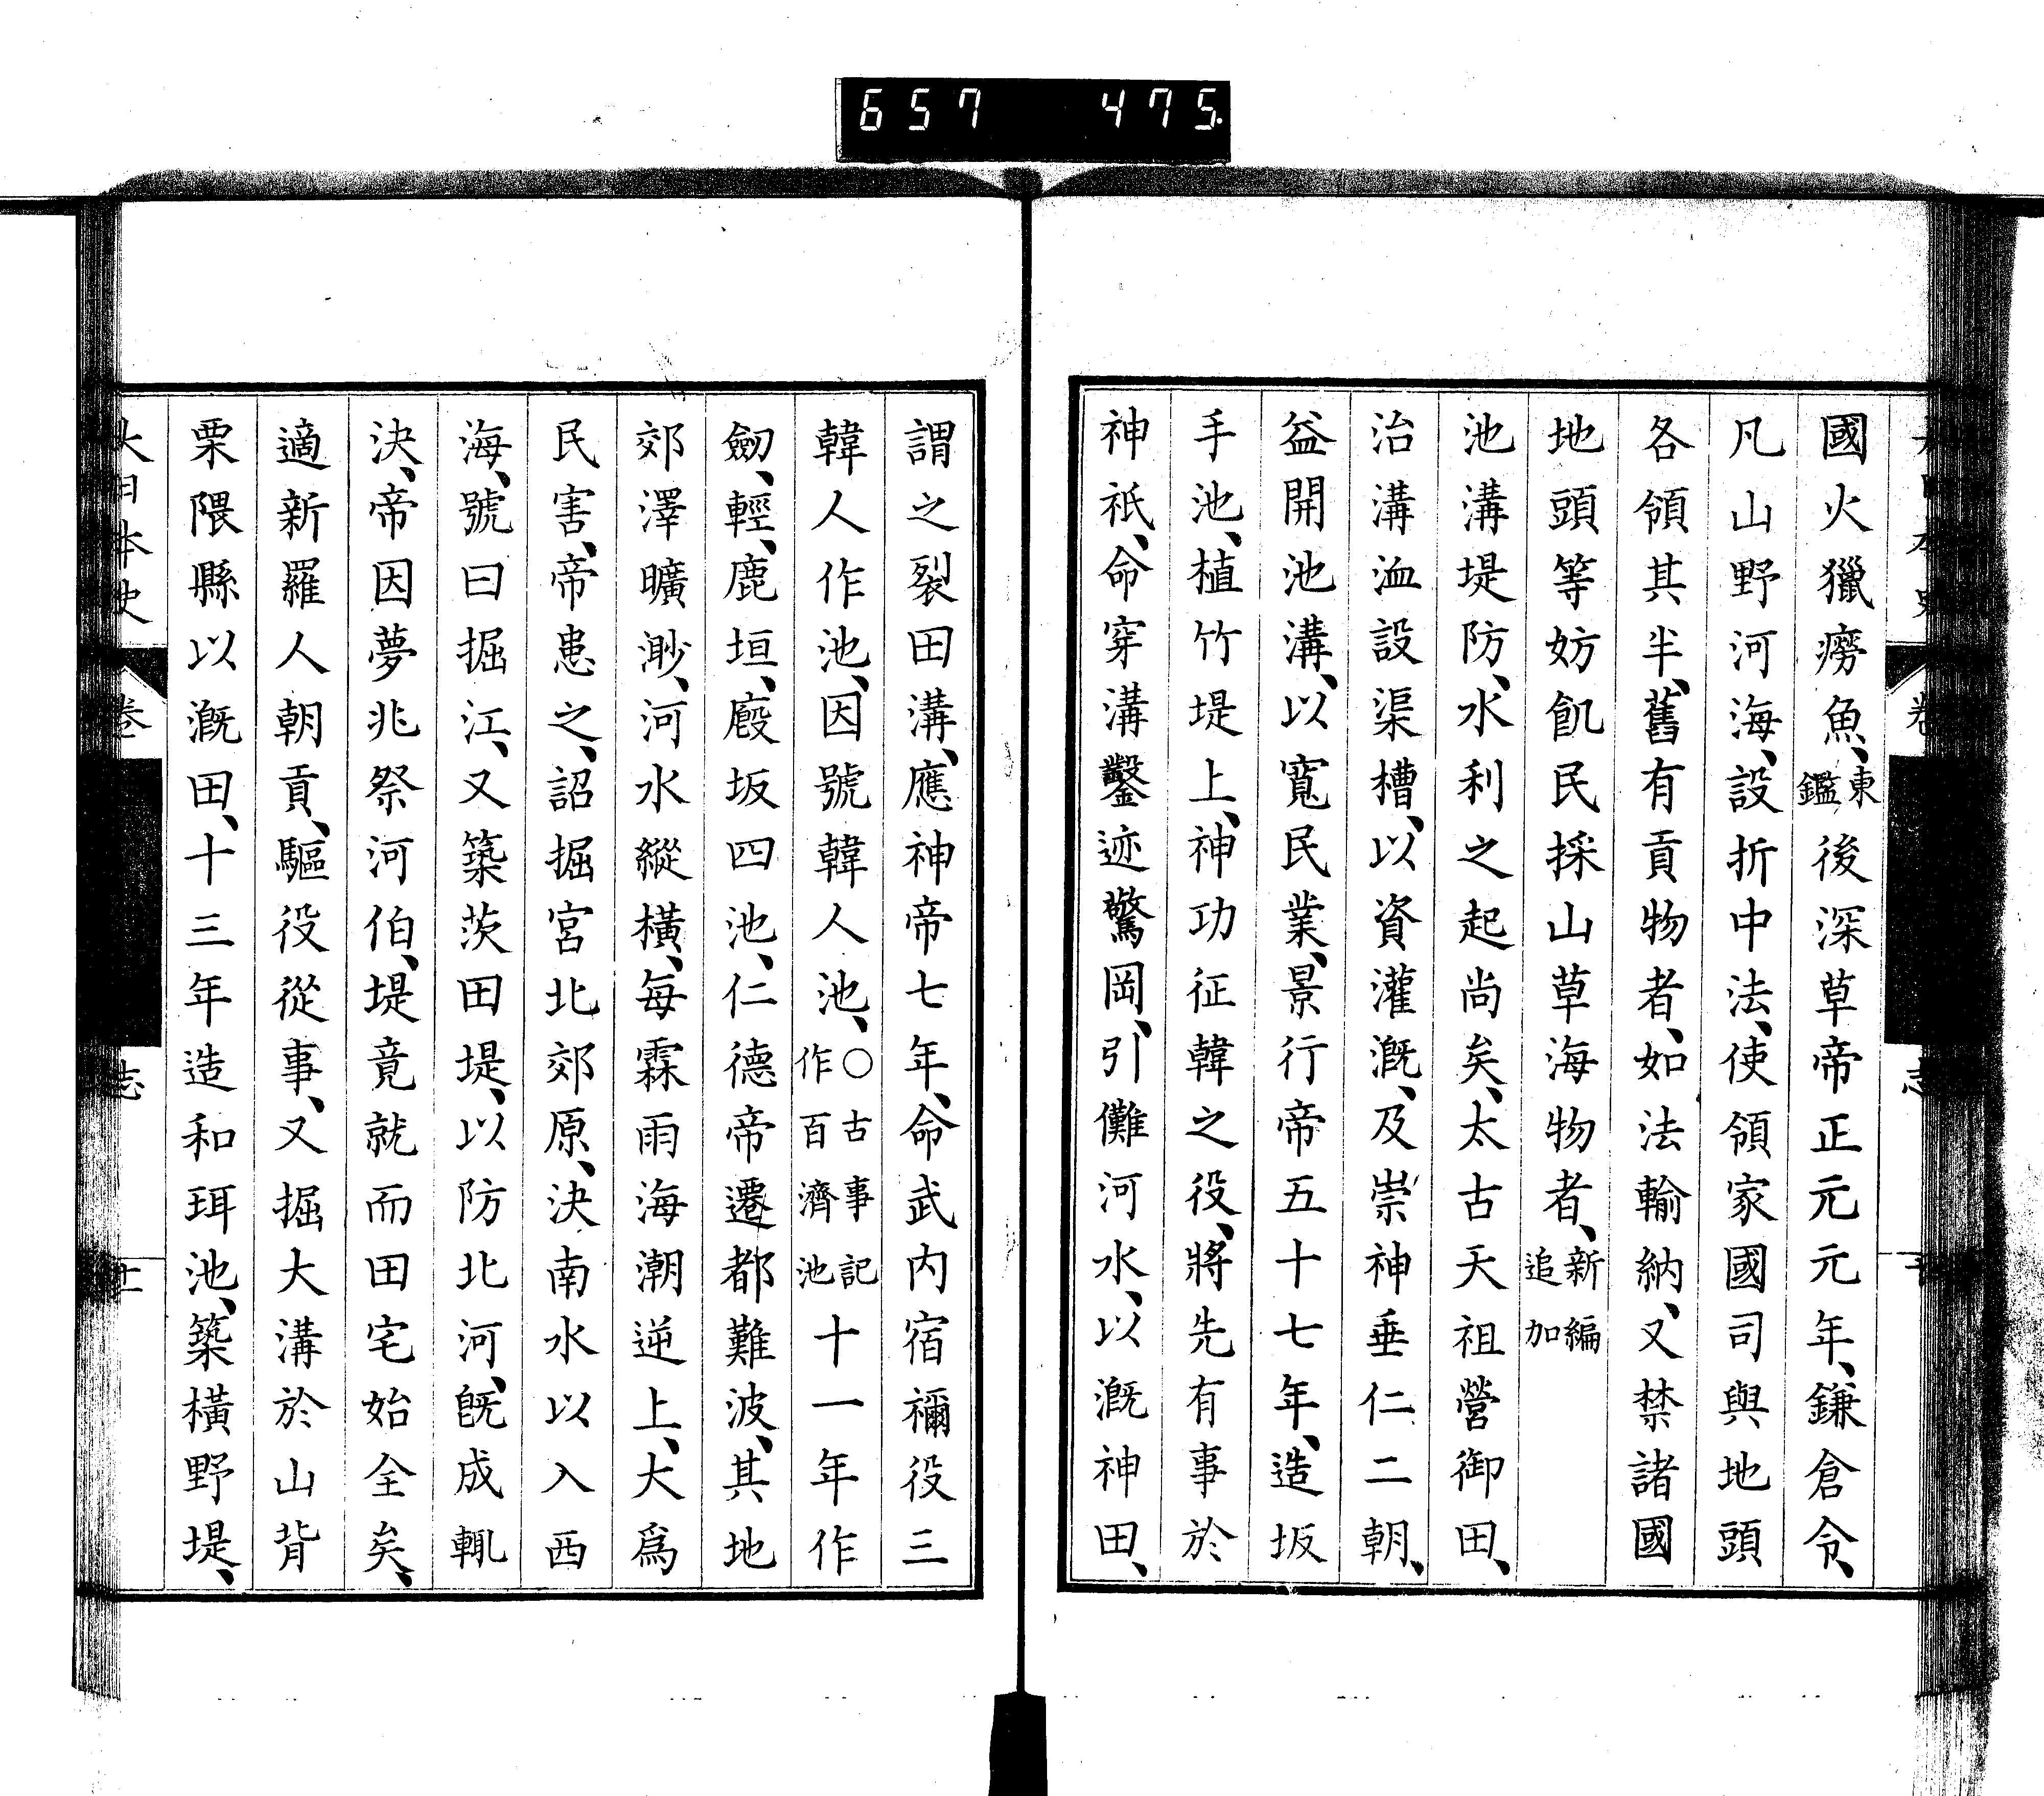 657 475.
國火獵癆魚、東鑑後深草帝正元元年、鎌倉令、
凡山野河海、設折中法、使領家國司與地頭
各領其半、舊有貢物者、如法輸納、又禁諸國
地頭等妨飢民採山草海物者、新編追加
池溝堤防、水利之起尚矣、太古天祖營御田、
治溝洫設渠槽、以資灌漑、及崇神垂仁二朝、
益開池溝、以寬民業、景行帝五十七年、造坂
手池、植竹堤上、神功征韓之役、將先有事於
神祇、命穿溝鑿迹驚岡、引儺河水、以漑神田、
謂之裂田溝、應神帝七年、命武内宿禰役三
韓人作池、因號韓人池、○古事記作百濟池十一年作
劒、輕、鹿垣、廐坂四池、仁德帝遷都難波、其地
郊澤曠渺、河水縱橫、每霖雨海潮逆上、大爲
民害、帝患之、詔掘宮北郊原、決南水以入西
海、號曰掘江、又築茨田堤、以防北河、旣成輒
決、帝因夢兆祭河伯、堤竟就而田宅始全矣、
適新羅人朝貢、驅役從事、又掘大溝於山背
栗隈縣以漑田、十三年造和珥池、築橫野堤、
大日本史 卷 志